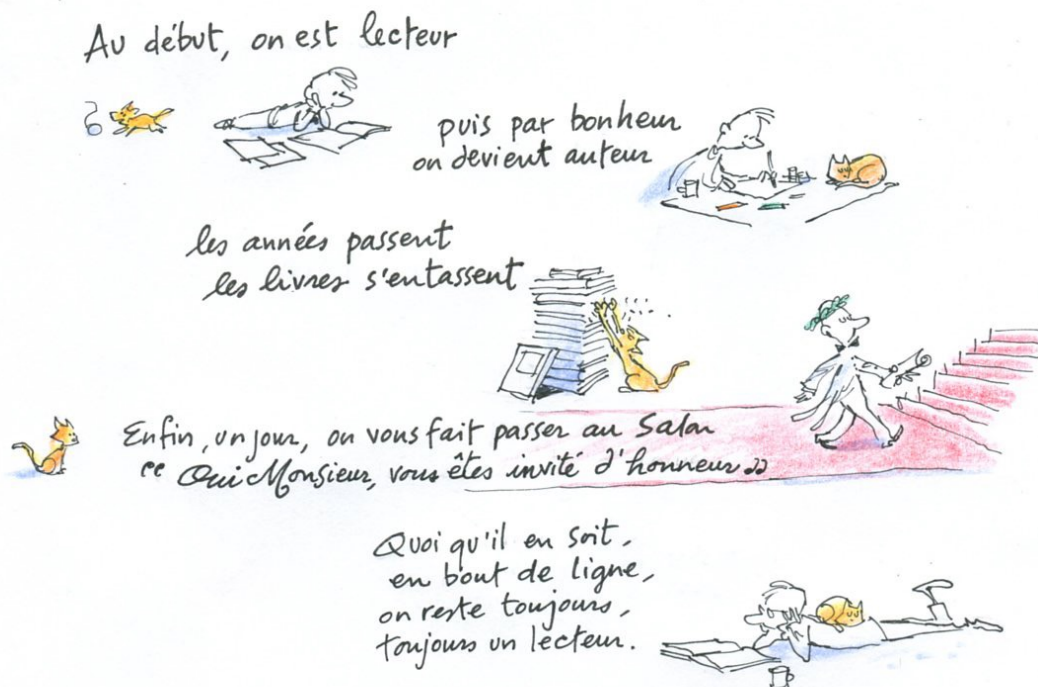 Au début, on est lecteur
puis par bonheur
on devient auteur
les années passent
les livres s'entassent
Enfin, un jour, on vous fait passer au Salon
“ Oui Monsieur, vous êtes invité d'honneur ”
Quoi qu'il en soit,
en bout de ligne,
on reste toujours,
toujours un lecteur.